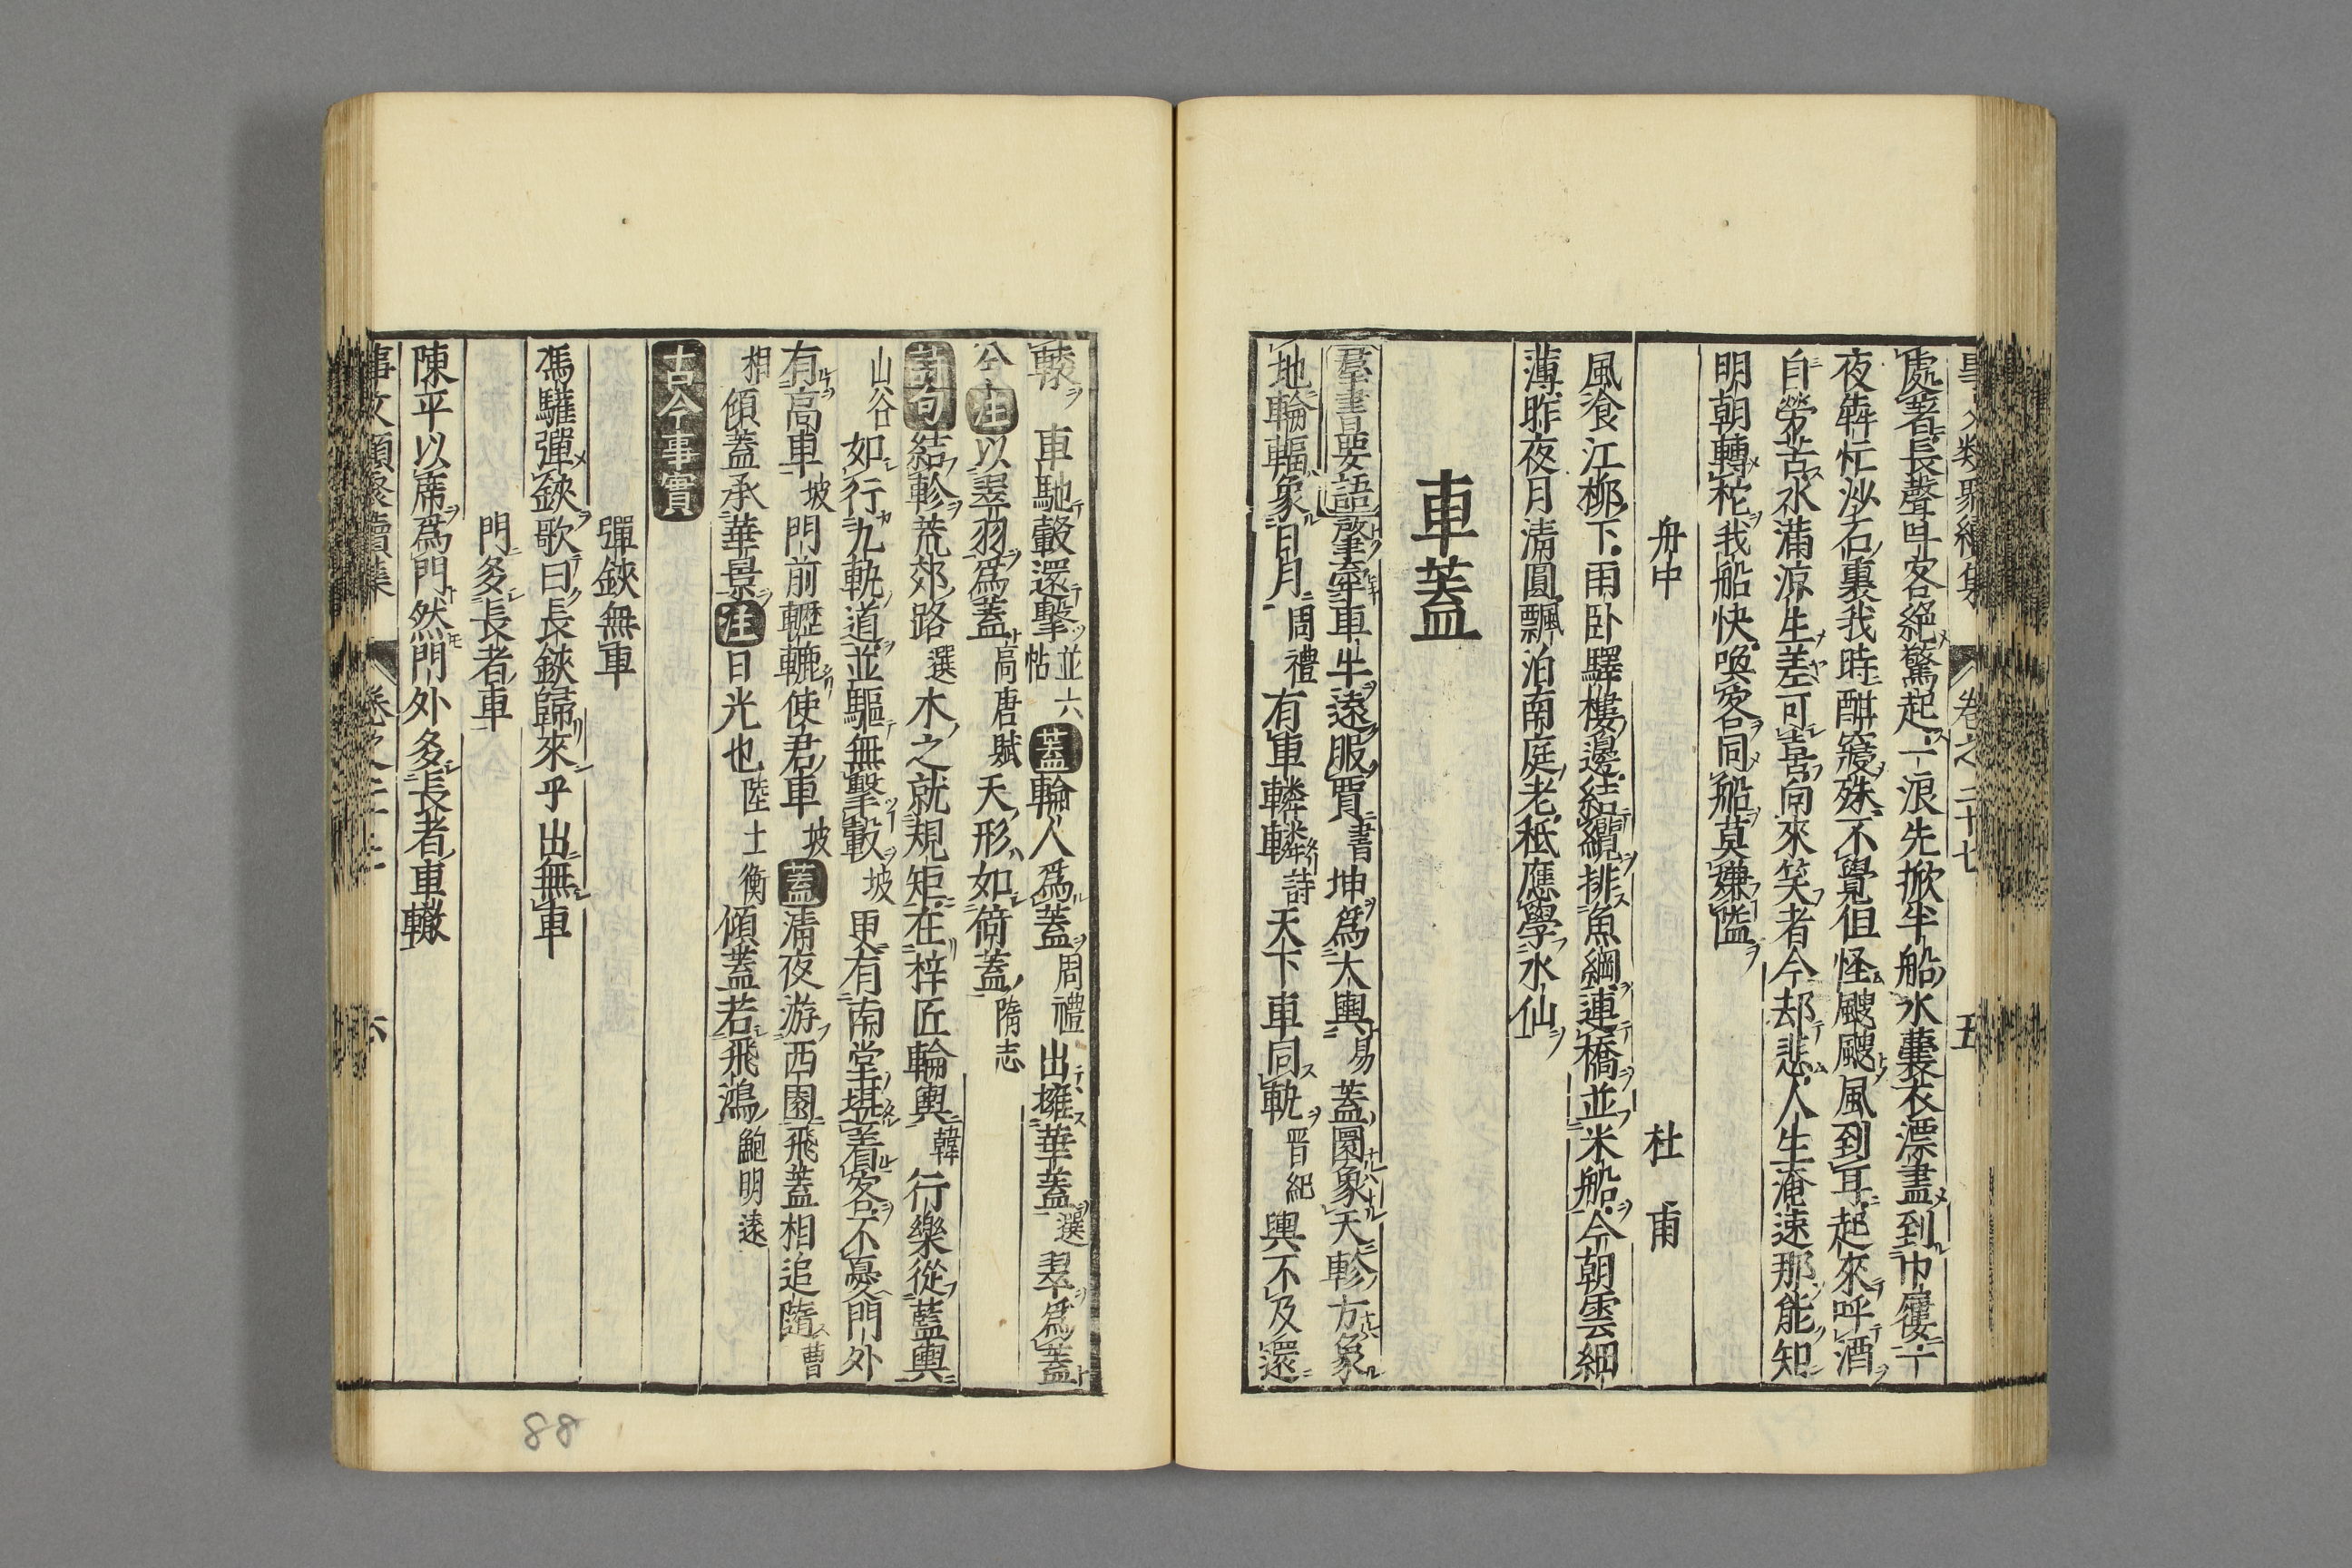 處著長聲叫客絕驚起一浪先掀半船水囊衣漂盡到巾屨一
夜犇忙沙石裏我時酣寢殊不覺但怪颼颼風到耳起來呼酒
自勞苦水滿涼生差可喜向來笑者今却悲人生淹速那能知
明朝轉柁我船快喚客同船莫嫌隘
舟中 杜甫
風飡江柳下雨卧驛樓邊結纜排魚網連橋並米船今朝雲細
薄昨夜月清圓飄泊南庭老秖應學水仙
車蓋
羣書要語肇牽車牛遠服賈書 坤爲大輿易 蓋圜象天軫方象
地輪輻象日月周禮 有車轔轔詩 天下車同軌晉紀 輿不及還
轅 車馳轂還擊並六帖 蓋輪人爲蓋周禮 出擁華蓋選 翠爲蓋
今注以翠羽爲蓋高唐賦 天形如倚蓋隋志
詩句結軫荒郊路選 木之就規矩在梓匠輪輿韓 行樂從藍輿
山谷 如行九軌道並驅無擊轂坡 更有南堂堪着客不憂門外
有高車坡 門前轣轆使君車坡 蓋清夜游西園飛蓋相追隨曹
相傾蓋承華景注日光也陸士衡 傾蓋若飛鴻鮑明遠
古今事實
彈鋏無車
馮驩彈鋏歌曰長鋏歸來乎出無車
門多長者車
陳平以席爲門然門外多長者車轍
事文類聚續集 卷之二十七 六
88